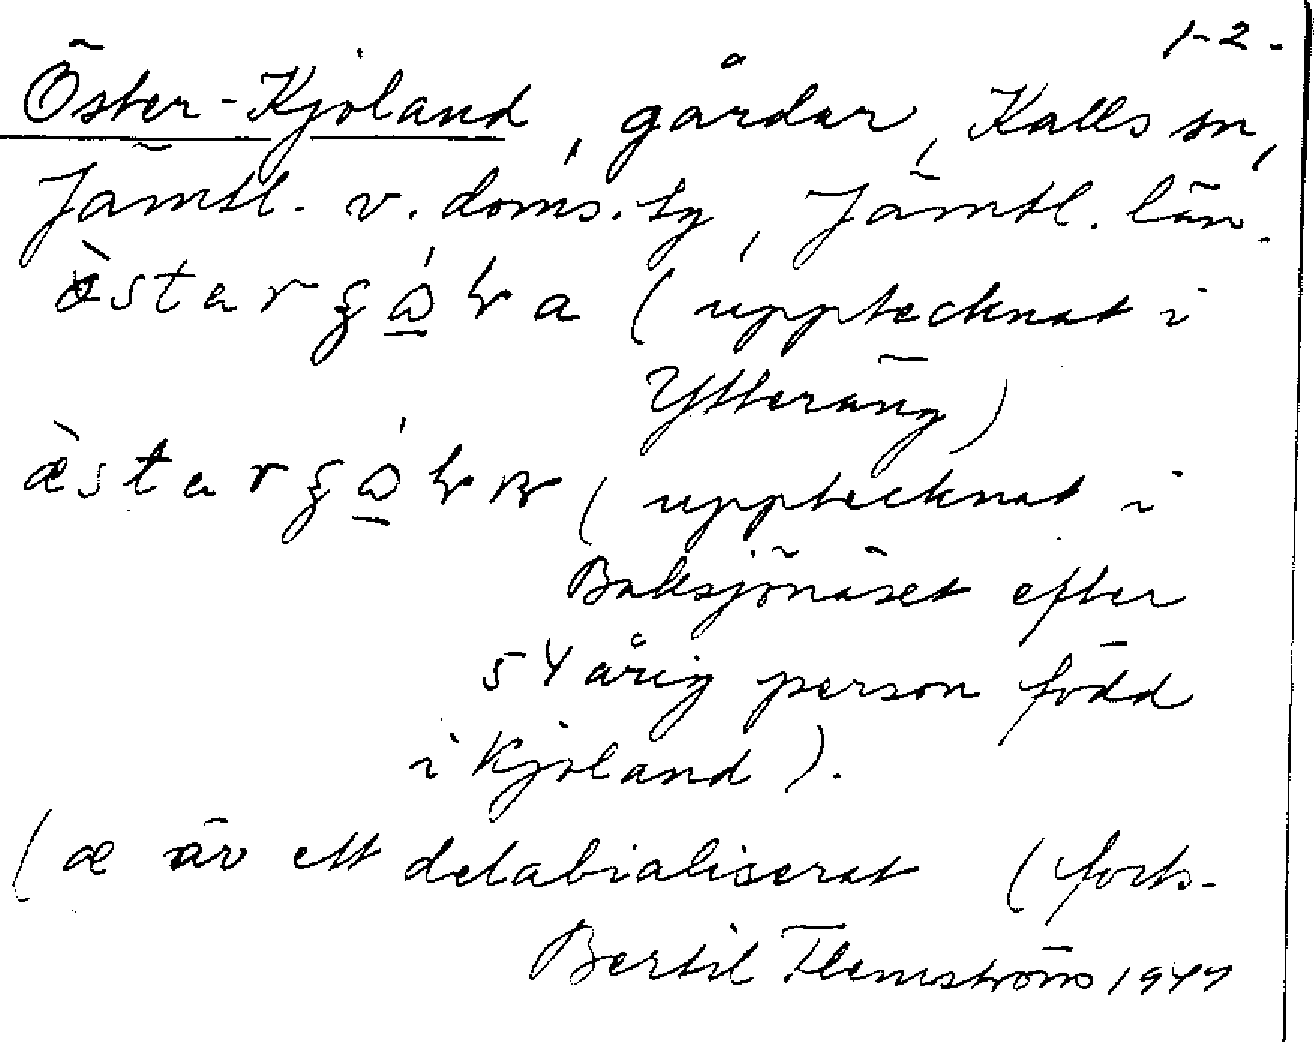 1-2.
Öster-Kjoland, gårdar, Kalls sn,
Jämtl. v. doms. tg, Jämtl. län.
(upptecknat i
Ytteräng)
(upptecknat i
Baksjönäset efter
54 årig person född
i Kjoland).
(æ är ett delabialiserat (forts.
Bertil Flemström 1947